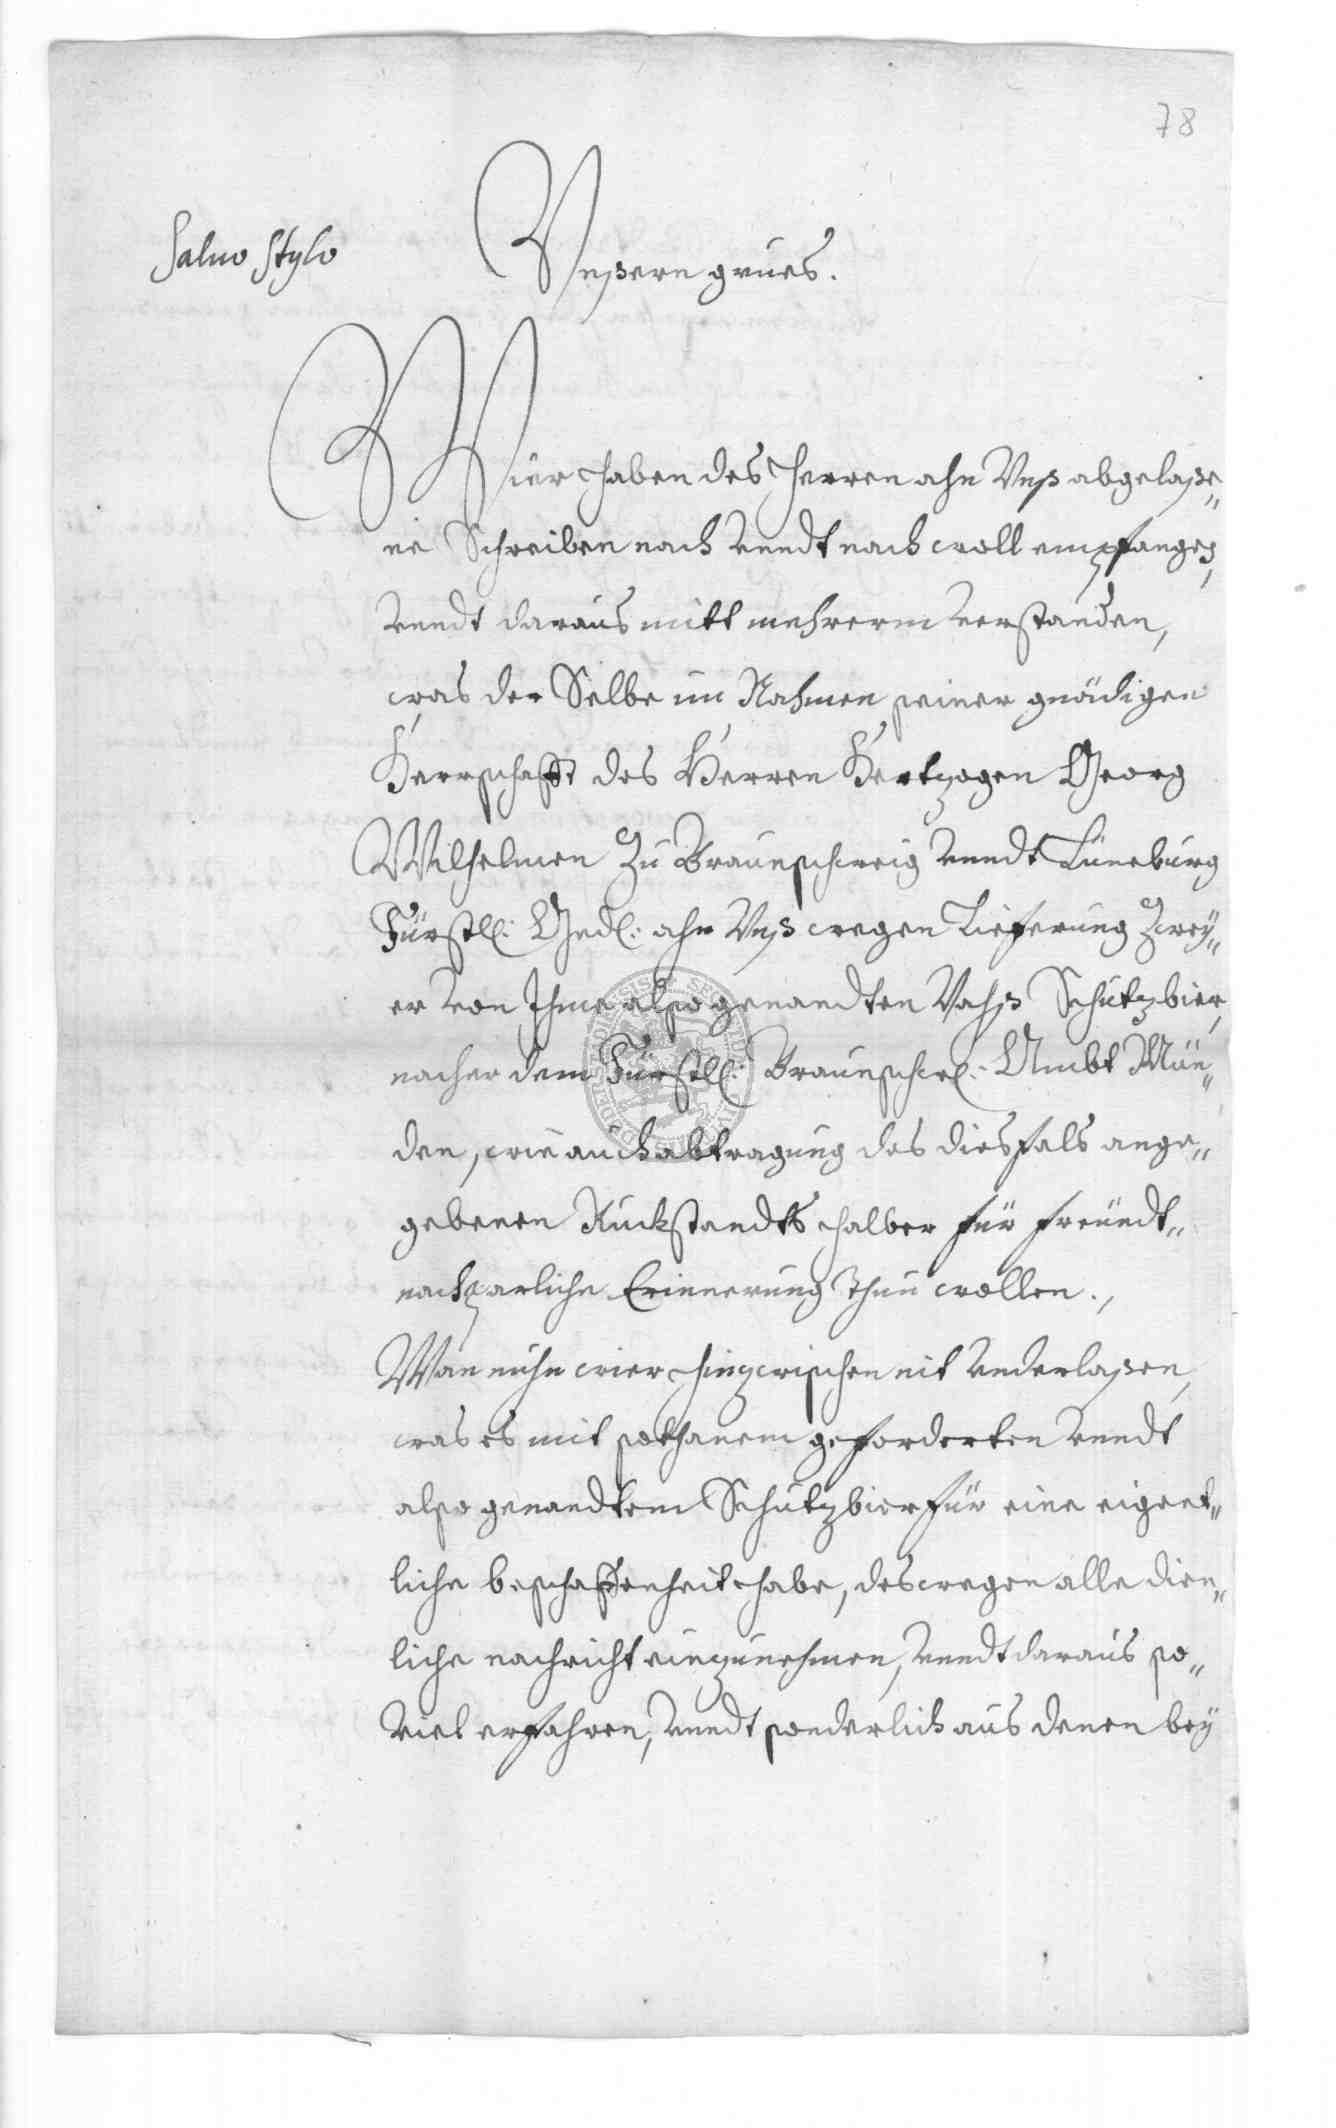 78
Salvo Stylo
Vnßern grues.
Wier haben des Herren ahn Vnß abgelaße„
ne Schreiben nach vndt nach woll empfangen,
vndt daraus mitt mehrerm verstanden,
was der Selbe im Nahmen seiner gnädigen
Herrschafft des Herren Hertzogen Georg
Wilhelmen Zu Braunschweig vndt Lüneburg
Fürstl: Gndl: ahn Vnß wegen Lieferung Zwey„
er von Ihme also genandten Vahß Schutzbier,
nacher dem Fürstl: Braunschwl: Ambt Mün„
den, wie auch abtragung des diesfals ange„
gebenen Ruckstandts halber für freündt„
nachparliche Erinnerung thun wollen.,
Wan nuhn wier hinzwischen nit vnderlaßen,
was es mit sothanem geforderten vndt
also genandtem Schutzbier für eine eigent„
liche beschaffenheit habe, deswegen alle dien„
liche nachricht einzunehmen, vndt daraus so„
viel erfahren, vndt sonderlich aus denen bey